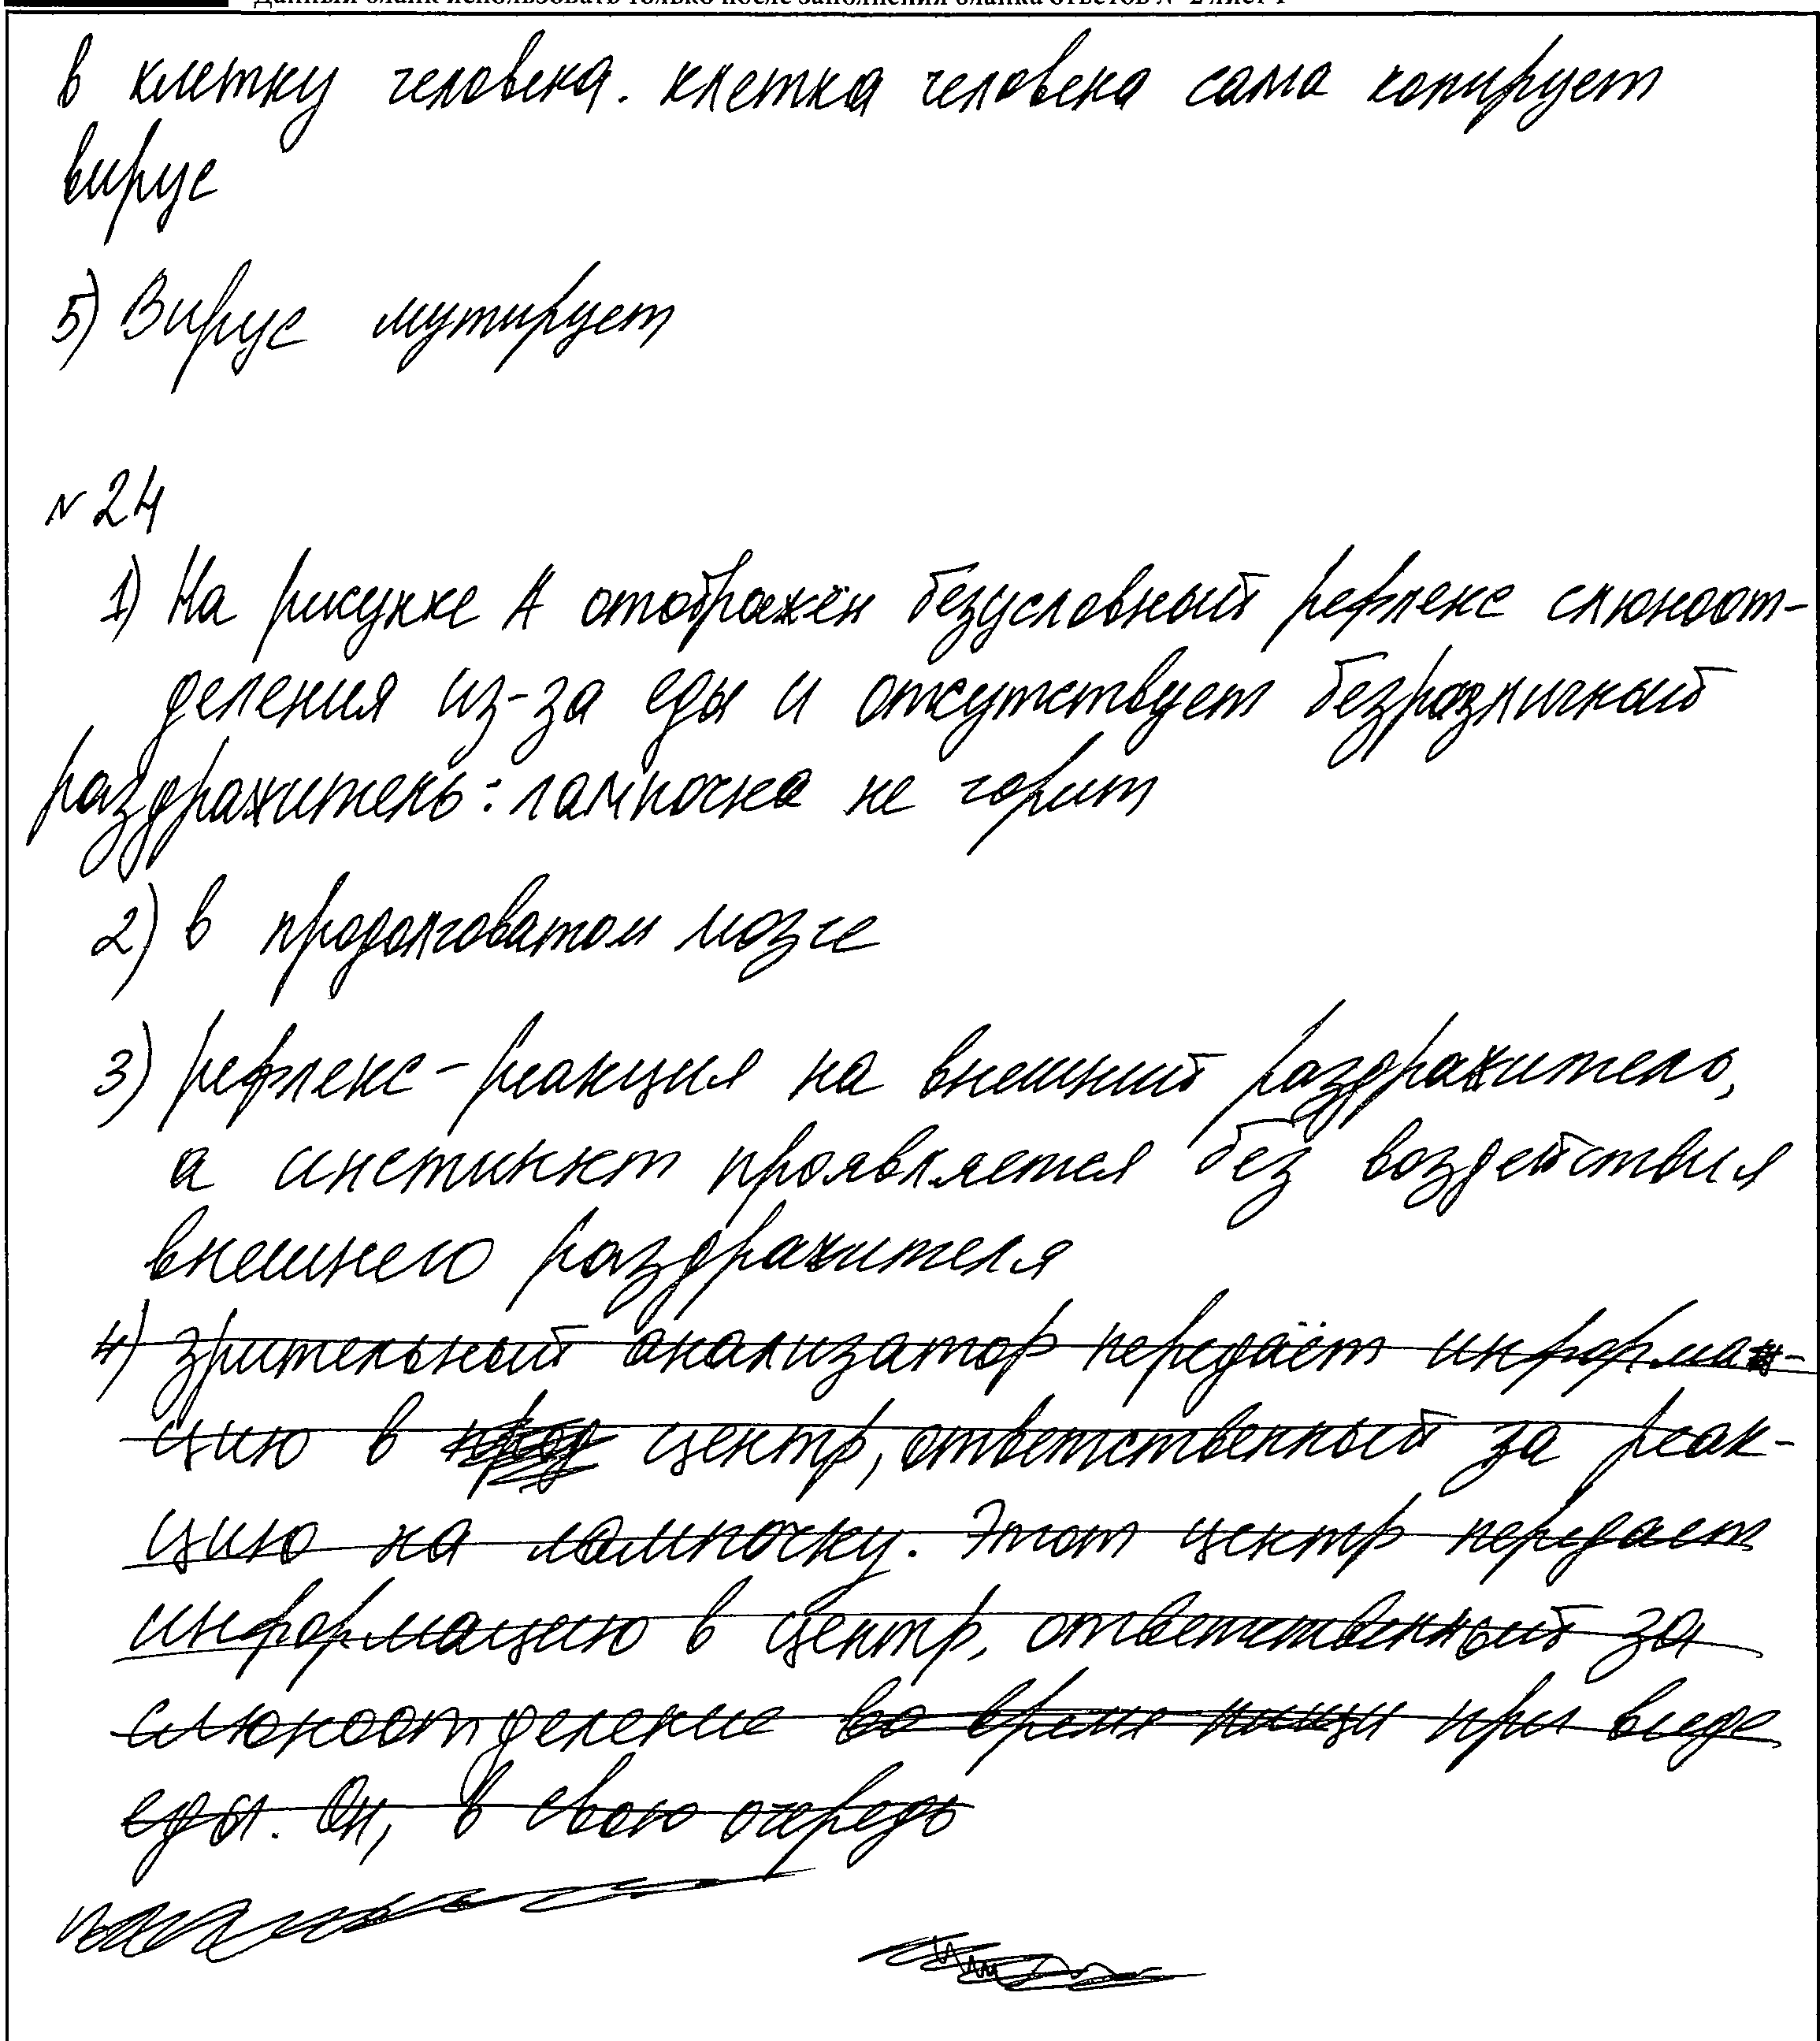 Данный бланк использовать только после заполнения бланка ответов № 2 лист 1
в клетку человека. клетка человека сама копирует
вирус
5) Вирус мутирует
№24
1) На рисунке А отображён безусловный рефлекс слюноот-
деления из-за еды и отсутствует безразличный
раздражитель: лампочка не горит
2) в продолговатом мозге
3) рефлекс - реакция на внешний раздражитель,
а инстинкт проявляется без воздействия
внешнего раздражителя
4) зрительный анализатор передаёт информа-
цию в центр, ответственный за реак-
цию на лампочку. Этот центр передает
информацию в центр, ответственный за
слюноотделение во время пищи при виде
еды. Он, в свою очередь